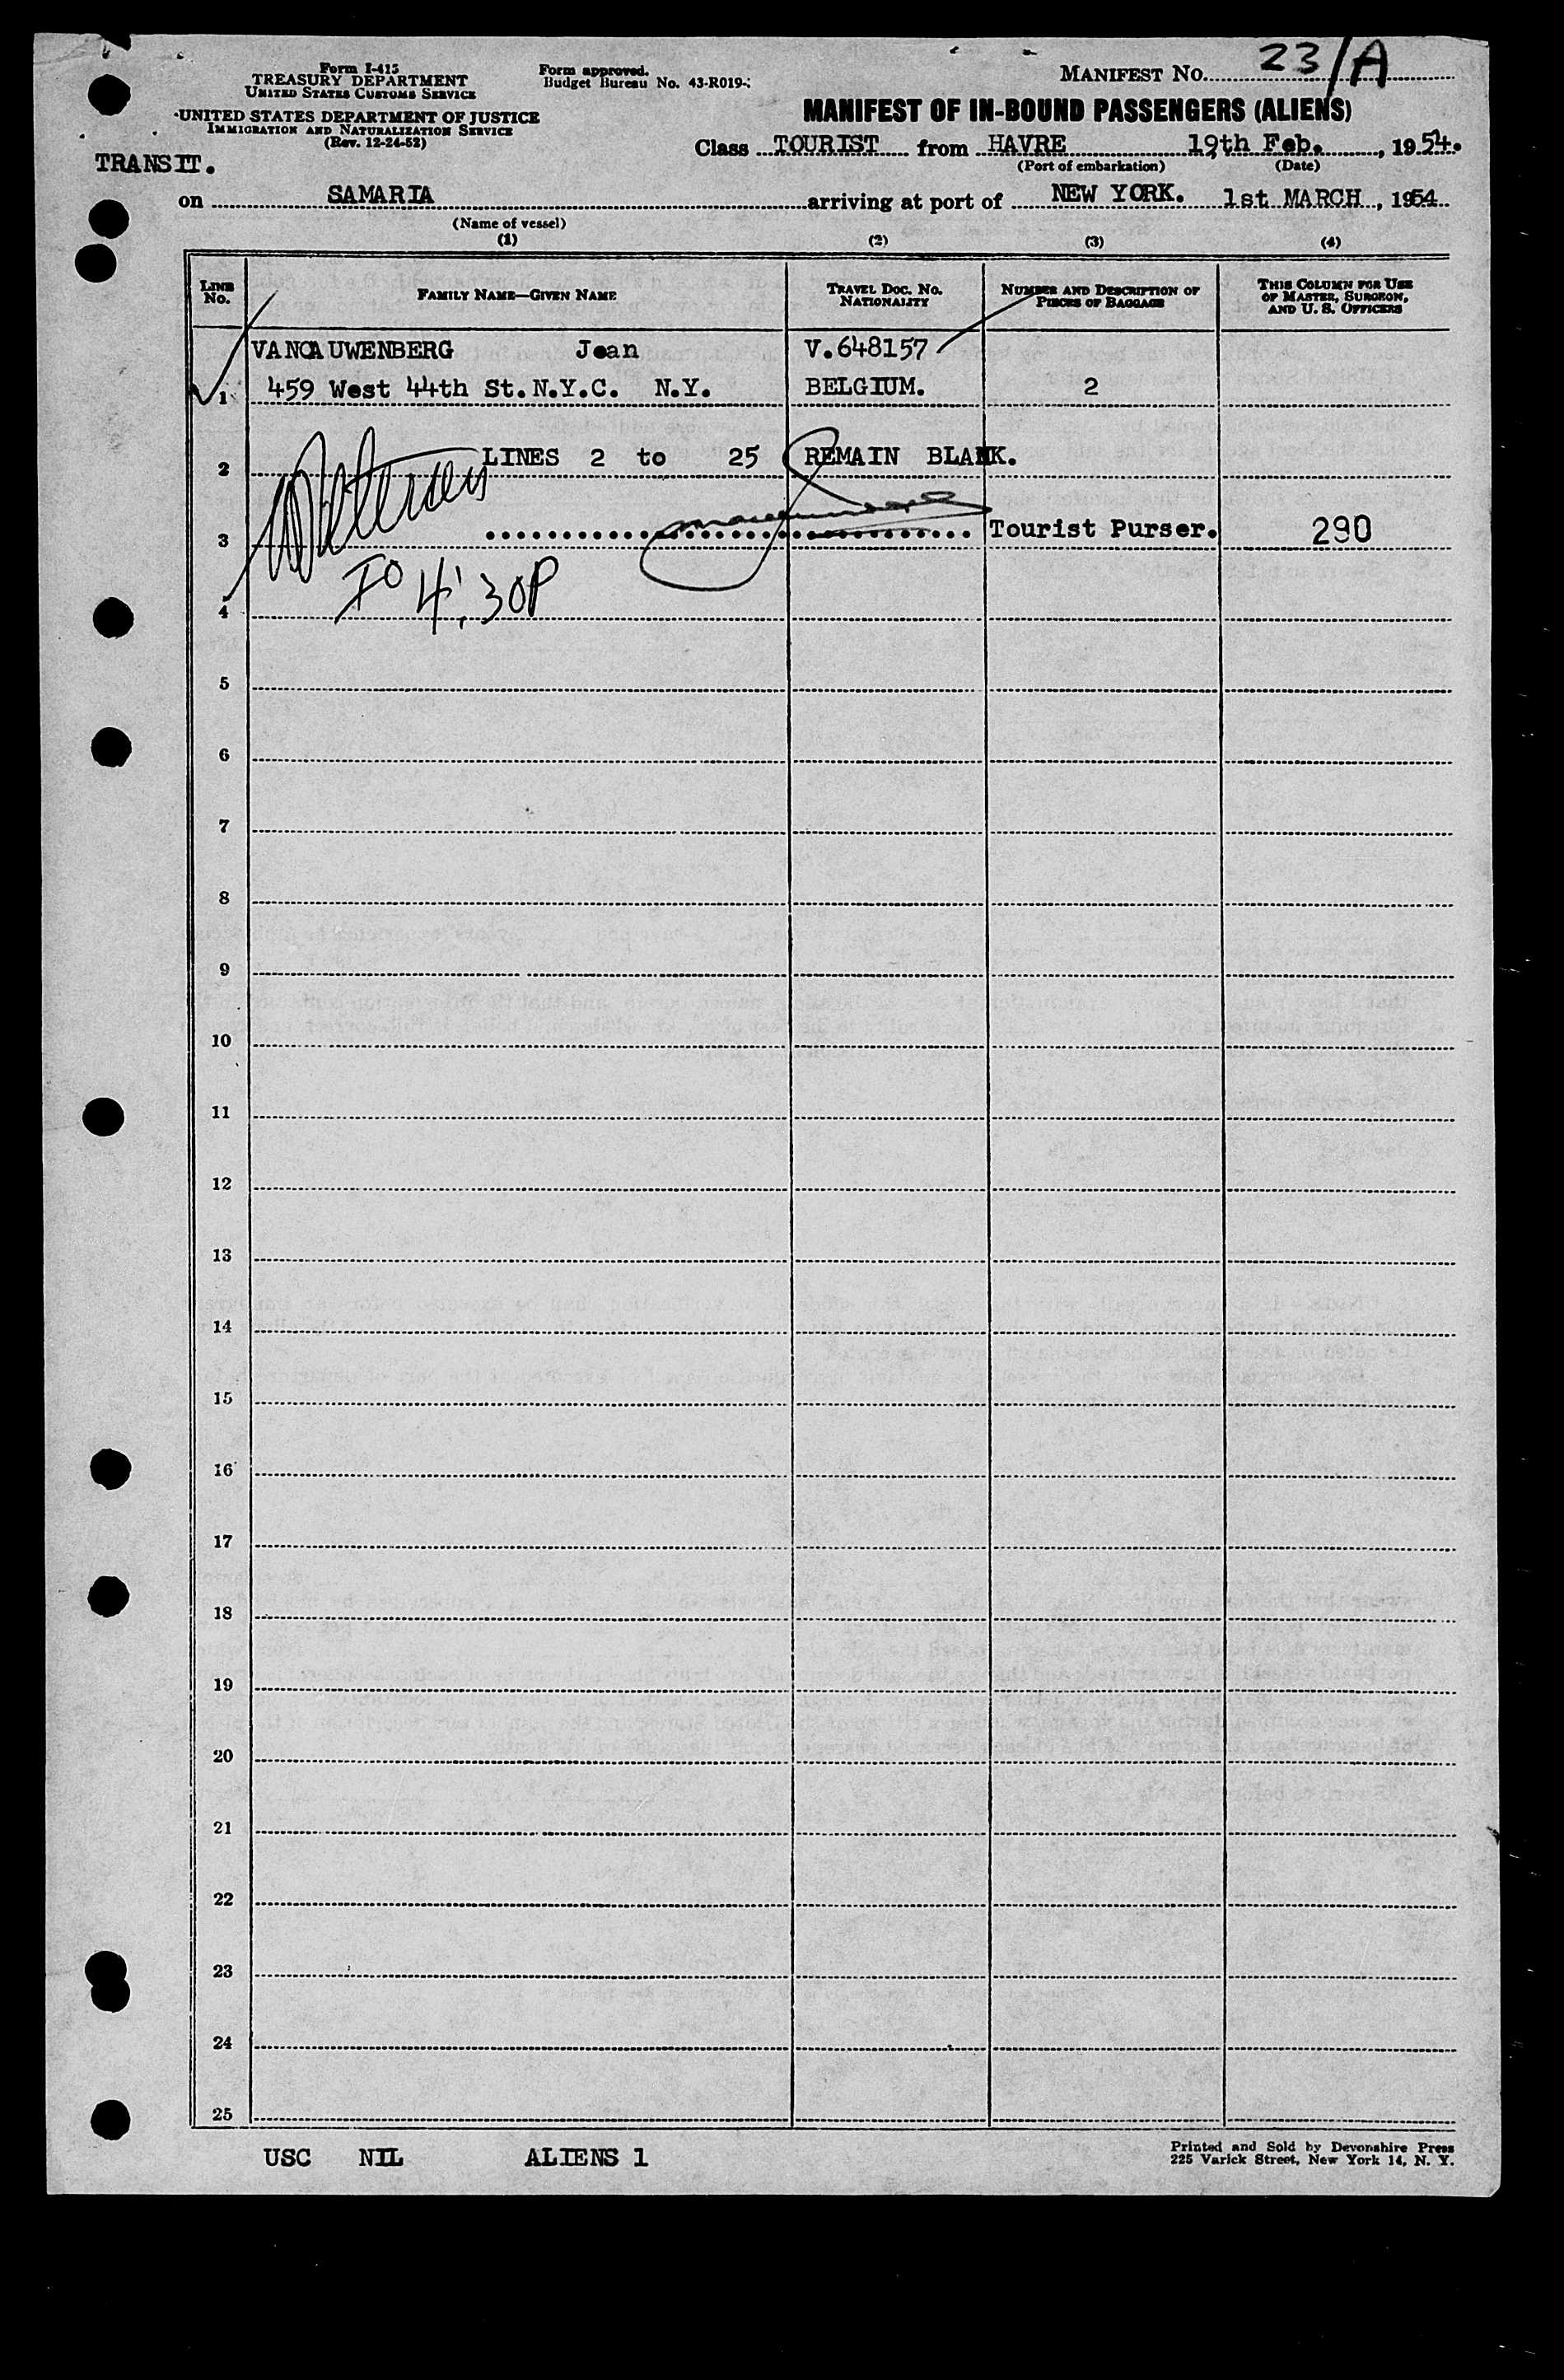 Form I-415
TREASURY DEPARTMENT
UNITED STATES CUSTOMS SERVICE
UNITED STATES DEPARTMENT OF JUSTICE
IMMIGRATION AND NATURALIZATION SERVICE
(Rev. 12-24-52)
Form approved.
Budget Bureau No. 43-R019-
MANIFEST NO. 23/A
MANIFEST OF IN-BOUND PASSENGERS (ALIENS)
Class TOURIST from HAVRE 19th Feb. , 1954.
(Port of embarkation) (Date)
TRANSIT.
on SAMARIA arriving at port of NEW YORK. 1st MARCH , 1954
(Name of vessel)
(1) (2) (3) (4)
LINE NO. FAMILY NAME—GIVEN NAME TRAVEL DOC. NO. NATIONALITY NUMBER AND DESCRIPTION OF PIECES OF BAGGAGE THIS COLUMN FOR USE OF MASTER, SURGEON, AND U. S. OFFICERS
VANCAUWENBERG Jean V.648157
1 459 West 44th St.N.Y.C. N.Y. BELGIUM. 2
2 LINES 2 to 25 REMAIN BLANK.
3 Tourist Purser. 290
4 IO 4:30P
5
6
7
8
9
10
11
12
13
14
15
16
17
18
19
20
21
22
23
24
25
USC NIL ALIENS 1
Printed and Sold by Devonshire Press
225 Varick Street, New York 14, N. Y.